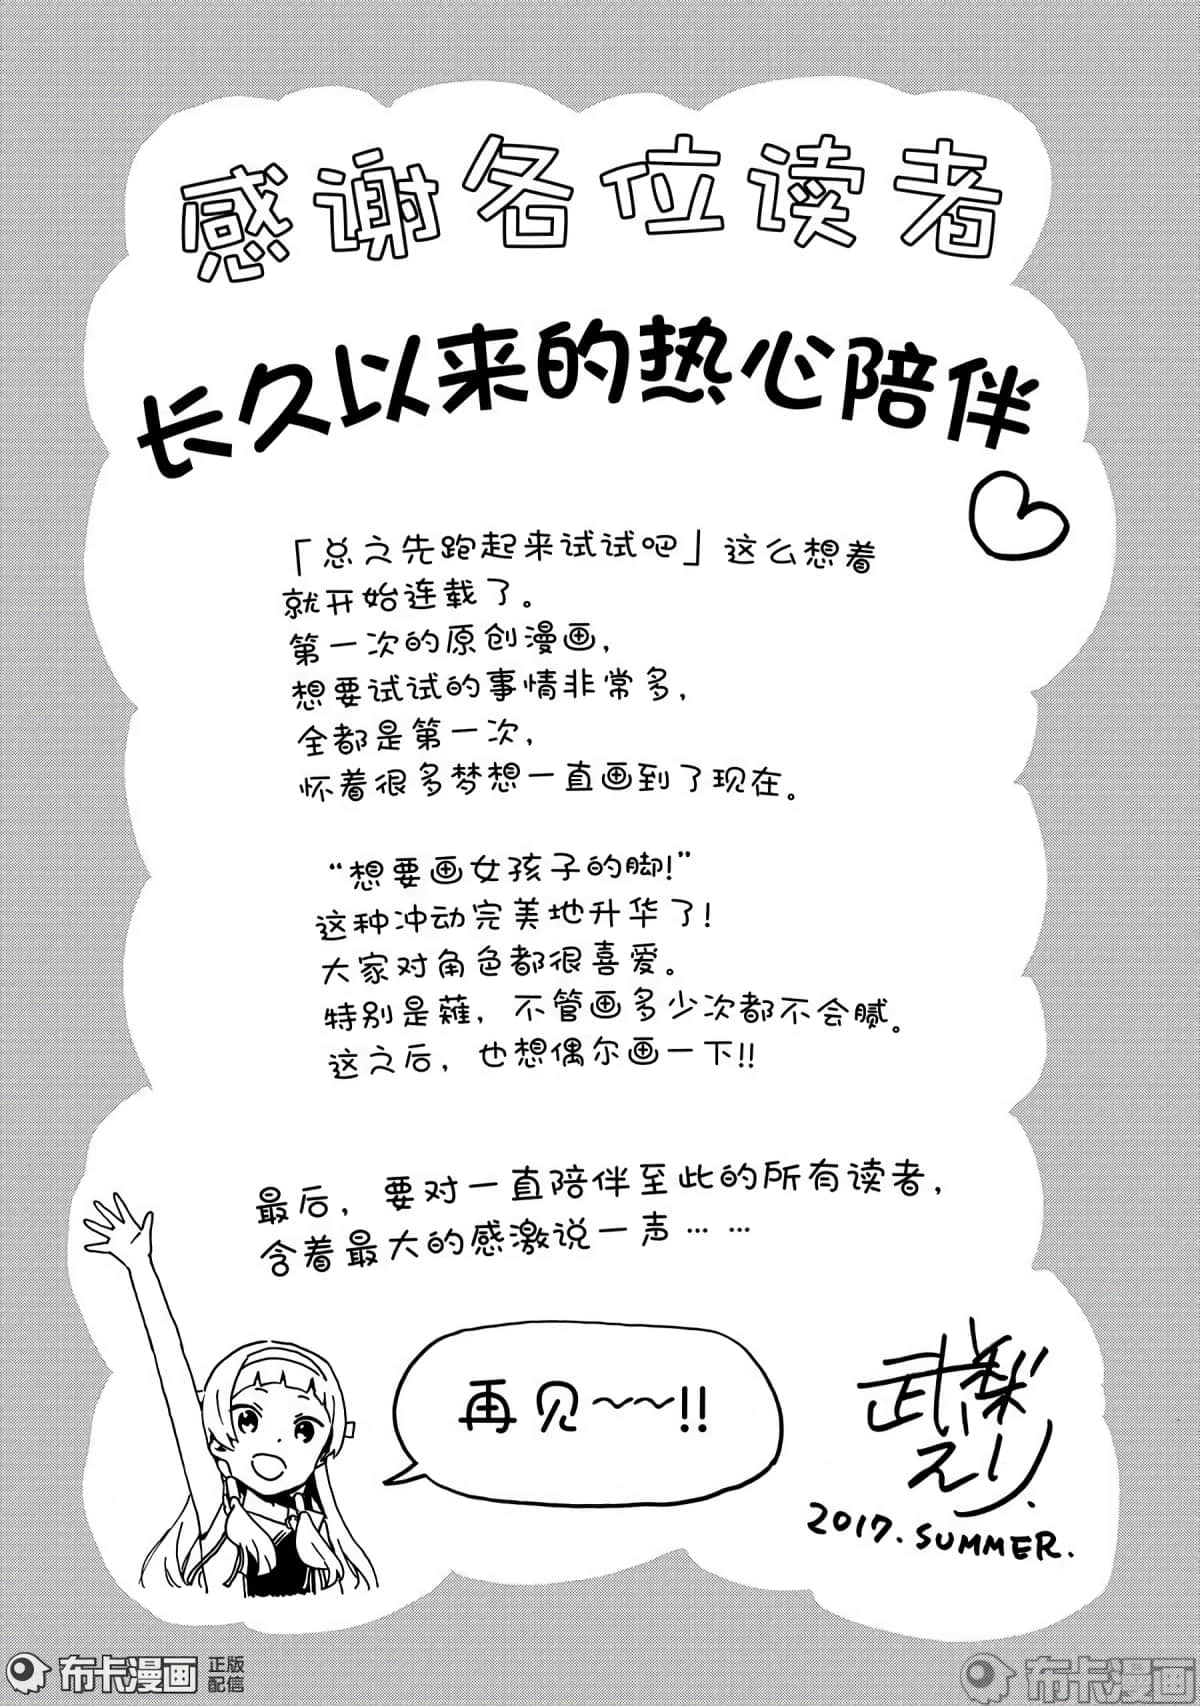 感谢各位读者
长久以来的热心陪伴
「总之先跑起来试试吧」这么想着
就开始连载了。
第一次的原创漫画,
想要试试的事情非常多,
全都是第一次,
怀着很多梦想一直画到了现在。
“想要画女孩子的脚!”
这种冲动完美地升华了!
大家对角色都很喜爱。
特别是薙, 不管画多少次都不会腻。
这之后, 也想偶尔画一下!!
最后, 要对一直陪伴至此的所有读者,
含着最大的感激说一声……
再见~~!!
武梨えり.
2017. SUMMER.
布卡漫画 正版配信
布卡漫画